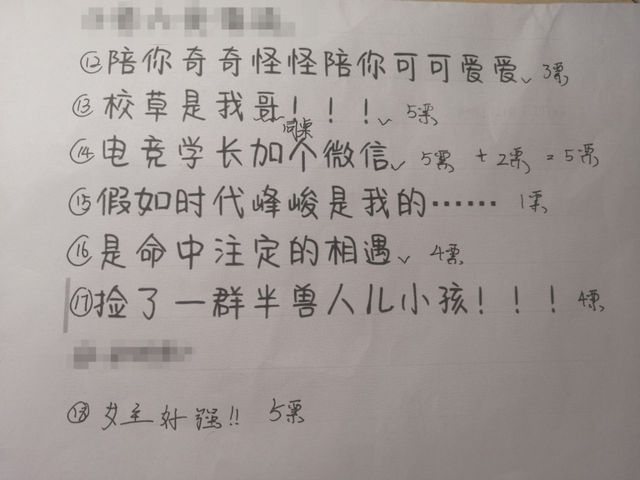 ⑫陪你奇奇怪怪陪你可可爱爱、3票
⑬校草是我哥！！！、5票
同票
⑭电竞学长加个微信、5票+2票=5票
⑮假如时代峰峻是我的…… 1票
⑯是命中注定的相遇、4票
⑰捡了一群半兽人儿小孩！！！4票
⑱女主好强!! 5票